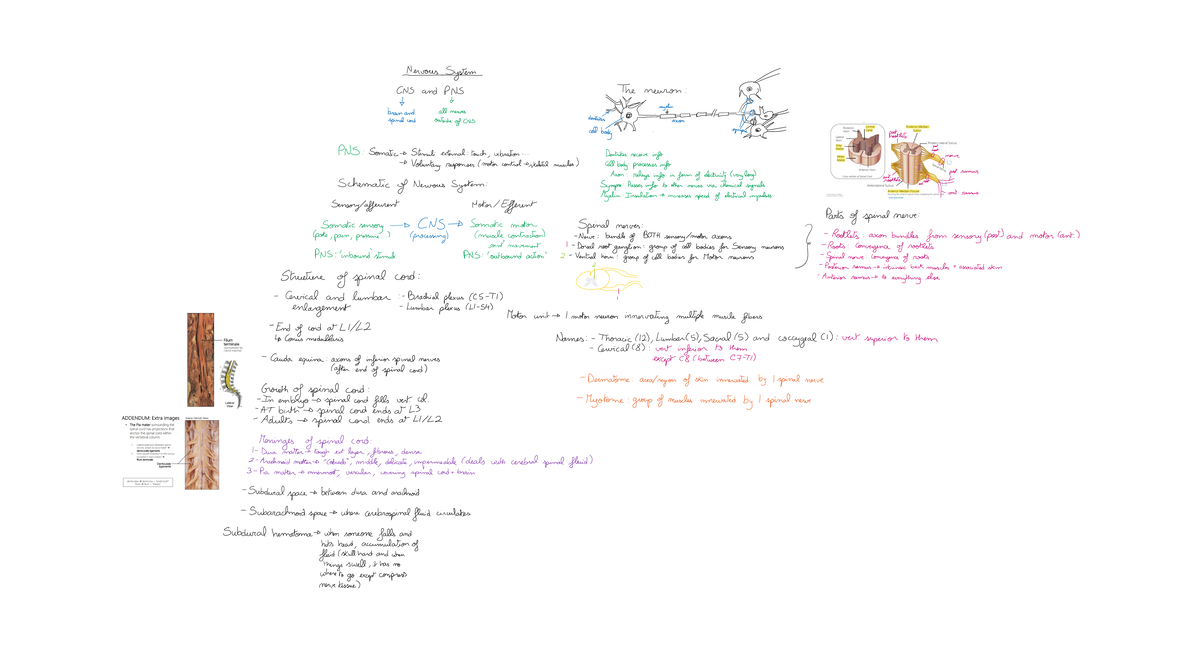 Nervous System
CNS and PNS
brain and
spinal cord
all nerves
outside of CNS
PNS: Somatic → Stimuli external: touch, vibration...
→ Voluntary responses (motor control → skeletal muscles)
Schematic of Nervous System:
Sensory/afferent
Motor/Efferent
Somatic sensory
(poke, pain, pressure...)
CNS
(processing)
Somatic motor
(muscle contraction)
and movement
PNS: 'inbound' stimuli
PNS: 'outbound action'
Structure of spinal cord:
- Cervical and lumbar
enlargement
: - Brachial plexus (C5-T1)
- Lumbar plexus (L1-S4)
- End of cord at L1/L2
↳ Conus medullaris
- Cauda equina: axons of inferior spinal nerves
(after end of spinal cord)
Growth of spinal cord:
- In embryo → spinal cord fills vert col.
- AT birth → spinal cord ends at L3
- Adults → spinal cord ends at L1/L2
Meninges of spinal cord:
1 - Dura matter → tough ext layer, fibrous, dense
2 - Arachnoid matter → "cobweb", middle, delicate, impermeable (deals with cerebral spinal fluid)
3 - Pia matter → innermost, vascular, covering spinal cord + brain
- Subdural space → between dura and arachnoid
- Subarachnoid space → where cerebrospinal fluid circulates
Subdural hematoma → when someone falls and
hits head, accumulation of
fluid (skull hard and when
things swell, it has no
where to go except compress
nerve tissue)
Filum
terminale
Lateral
view
ADDENDUM: Extra images
The Pia mater surrounding the
spinal cord has projections that
anchor the spinal cord within
the vertebral column
The neuron:
dendrites
cell body
myelin
axon
synapse
Dendrites receive info
Cell body processes info
Axon: relays info in form of electricity (very long)
Synapse: Passes info to other nerves via chemical signals
Myelin: Insulation → increases speed of electrical impulses
Spinal nerves:
- Nerve: bundle of BOTH sensory/motor axons
1 - Dorsal root ganglion: group of cell bodies for Sensory neurons
2 - Ventral horn: group of cell bodies for Motor neurons
2
1
Motor unit → 1 motor neuron innervating multiple muscle fibers
Names: - Thoracic (12), Lumbar (5), Sacral (5) and coccygeal (1): vert superior to them
- Cervical (8): vert inferior to them
except C8 (between C7-T1)
- Dermatome: area/region of skin innervated by 1 spinal nerve
- Myotome: group of muscles innervated by 1 spinal nerve
nerve
post ramus
ant ramus
Parts of spinal nerve:
- Rootlets: axon bundles from sensory (post) and motor (ant.)
- Roots: convergence of rootlets
- Spinal nerve: convergence of roots
- Posterior ramus → intrinsic back muscles + associated skin
- Anterior ramus → to everything else